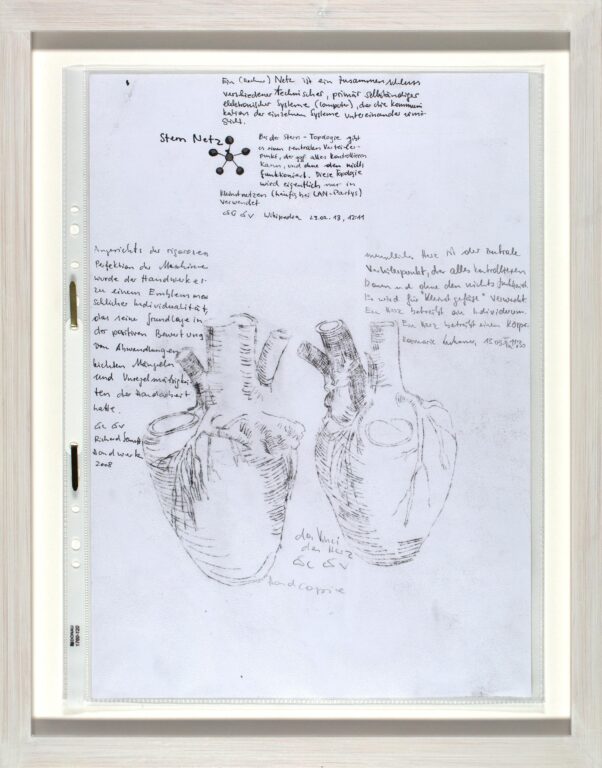 Ein (Rechner) Netz ist ein Zusammenschluss
verschiedener technischer, primär selbständiger
elektronischer Systeme (Computer), der die Kommuni
kation der einzelnen Systeme untereinander ermö
glicht.
Stern Netz
Bei der Stern-Topologie gibt
es einen zentralen Verteiler-
punkt, der ggf alles kontrollieren
kann, und ohne den nichts
funktioniert. Diese Topologie
wird eigentlich nur in
Kleinstnetzen (häufig bei LAN-Partys)
verwendet
Wikipedia 12:11
Angesichts der rigorosen
Perfektion der Maschinen
wurde der Handwerker
zu einem Emblem men
schlicher Individualität,
das seine Grundlage in
der positiven Bewertung
von Abwandlungen
leichten Mängeln
und Unregelmäßigkei
ten der Handarbeit
hatte.
Richard Sennett
Handwerk
2008
menschliche Herz ist der zentrale
Verteilerpunkt, der alles kontrollieren
kann und ohne den nichts funktioniert
Es wird für "Kleinstgefäße" verwendet
Ein Herz betreibt ein Individuum.
Ein Herz betreibt einen Körper.
da Vinci
das Herz
Handcopie
DONAU
1780-120